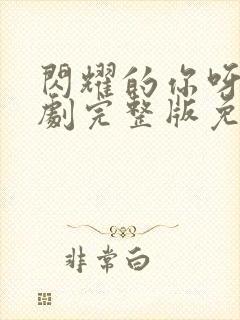 閃耀的你呀
劇完整版免
非常白